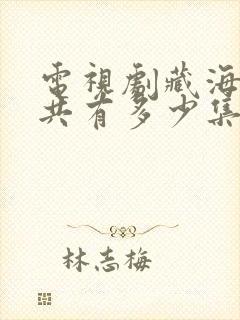 電視劇藏海
共有多少集
林志梅